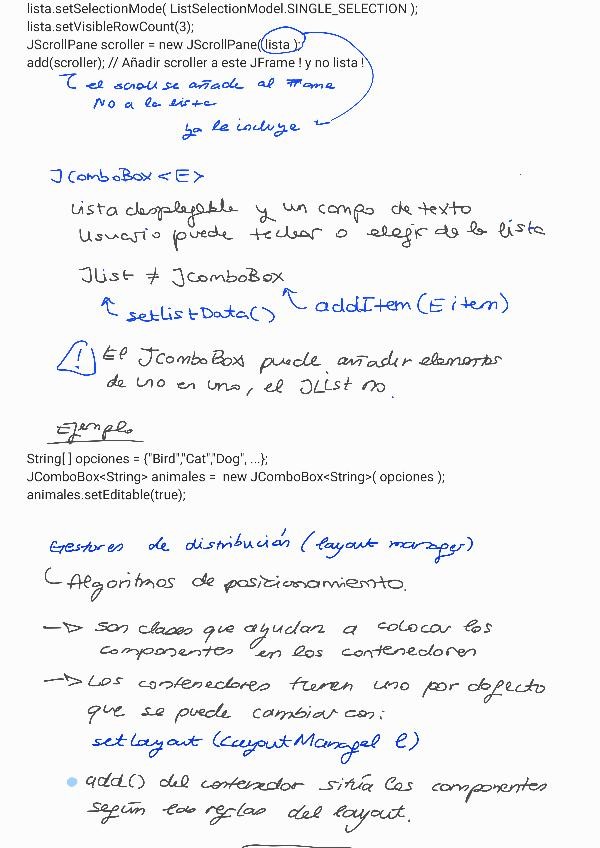 lista.setSelectionMode( ListSelectionModel.SINGLE_SELECTION );
lista.setVisibleRowCount(3);
JScrollPane scroller = new JScrollPane( lista );
add(scroller); // Añadir scroller a este JFrame ! y no lista !
el scroll se añade al Frame
NO a la lista
ya le incluye
JComboBox <E>
Lista desplegable y un campo de texto
Usuario puede teclear o elegir de la lista
JList ≠ JComboBox
setListData() addItem(E item)
! El JComboBox puede añadir elementos
de uno en uno, el JList no.
Ejemplo
String[ ] opciones = {"Bird","Cat","Dog", ...};
JComboBox<String> animales = new JComboBox<String>( opciones );
animales.setEditable(true);
Gestores de distribución (layout manager)
Algoritmos de posicionamiento.
—> son clases que ayudan a colocar los
componentes en los contenedores
—> Los contenedores tienen uno por defecto
que se puede cambiar con:
setLayout (LayoutManager l)
• add() del contenedor sitúa los componentes
según las reglas del layout.